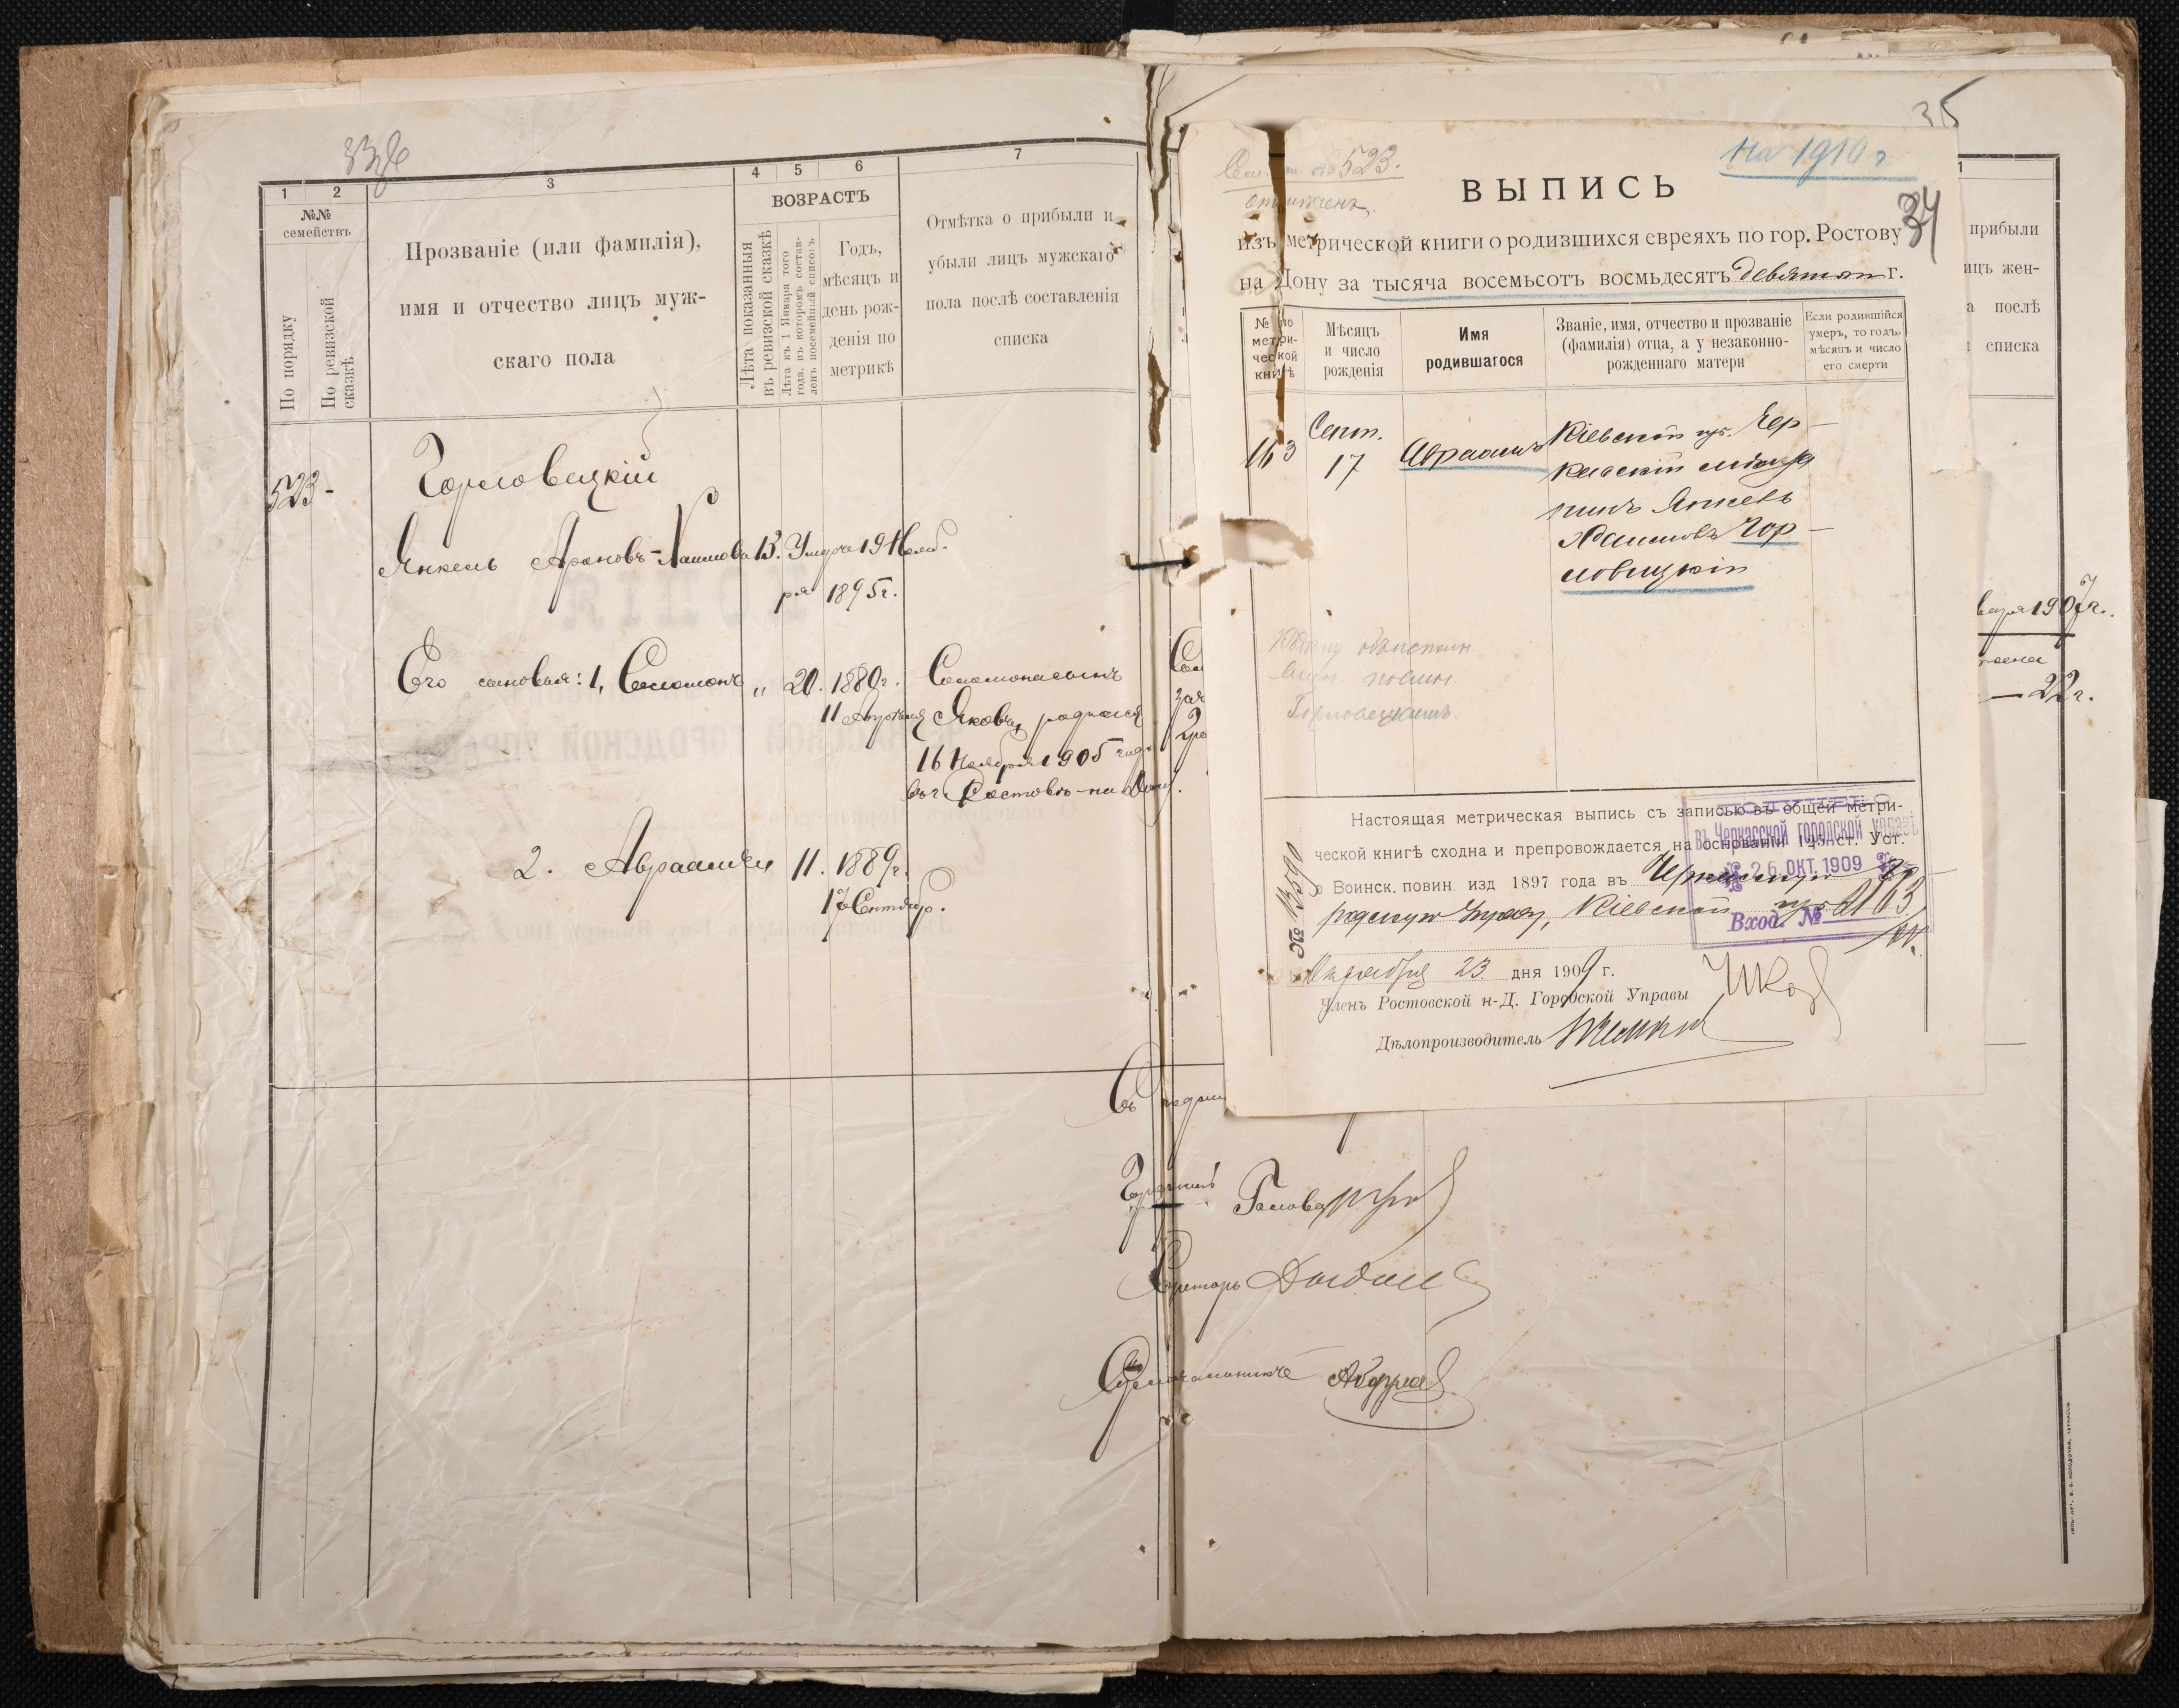 1
2
3
4
5
6
7
№№
семействъ
По порядку
По ревизской
сказкѣ
Прозваніе (или фамилія),
имя и отчество лицъ муж-
скаго пола
ВОЗРАСТЪ
Лѣта показанныя
въ ревизской сказкѣ
Лѣта къ 1 Января того
года, въ которомъ состав-
ленъ посемейный списокъ
Годъ,
мѣсяцъ и
день рож-
денія по
метрикѣ
Отмѣтка о прибыли и
убыли лицъ мужскаго
пола послѣ составленія
списка
523 -
Горловецкій
Янкель Ароновъ-Хаимовъ 13. Умеръ 19 Нояб-
ря 1895 г.
Его сыновья: 1, Соломонъ „ 20. 1880 г.
11 Апрѣля
Соломона сынъ
Яковъ, родился
16 Ноября 1905 года
въ г. Ростовѣ-на Дону.
2. Авраамъ 11. 1889 г.
17 Сентябр.
35
на 1910 г
34
№ 523.
ВЫПИСЬ
изъ метрической книги о родившихся евреяхъ по гор. Ростову
на Дону за тысяча восемьсотъ восмьдесятъ девятый г.
№ по
метри-
ческой
книгѣ
Мѣсяцъ
и число
рожденія
Имя
родившагося
Званіе, имя, отчество и прозваніе
(фамилія) отца, а у незаконно-
рожденнаго матери
Если родившійся
умеръ, то годъ,
мѣсяцъ и число
его смерти
163
Сент.
17
Авраамъ
Кіевской губ. Чер-
касскій мѣща-
нинъ Янкель
Хаимовъ Гор-
ловецкій
Горловецкимъ.
Настоящая метрическая выпись съ записью въ общей метри-
ческой книгѣ сходна и препровождается на основаніи 125 ст. Уст.
о Воинск. повин. изд 1897 года въ Черкасскую Го-
родскую Управу, Кіевской губ.
№ 13590
въ Черкасской городской управѣ
26 ОКТ. 1909
Вход. № 2163
Октября 23 дня 1909 г.
Членъ Ростовской н-Д. Городской Управы
Дѣлопроизводитель
прибыли
ицъ жен-
послѣ
списка
варя 1907 г.
— 22 г.
Городской Голова
Секретарь